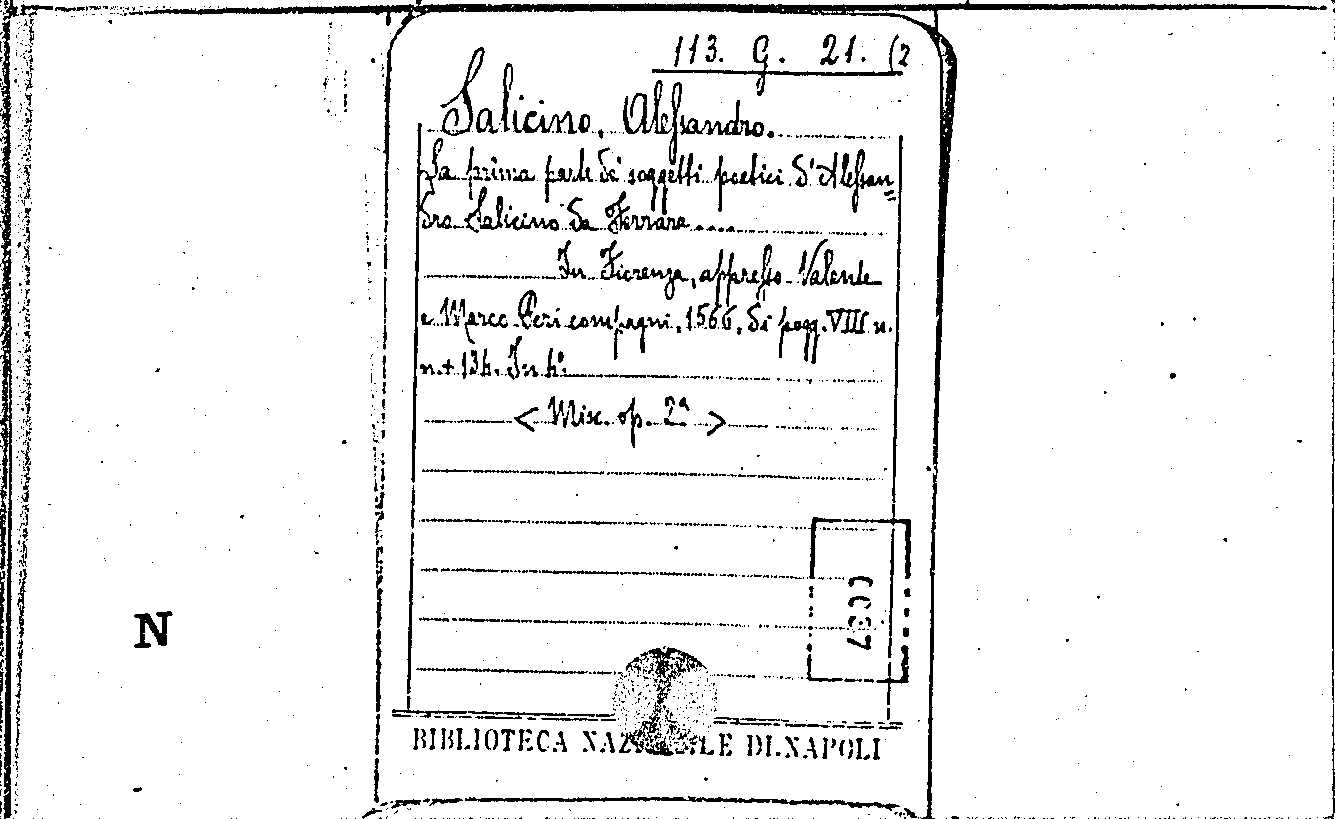 113. G. 21. (2
Salicino, Alessandro.
La prima parte de' soggetti poetici d'Alessan=
dro Salicino da Ferrara....
In Fiorenza, appresso Valente
e Marco Peri compagni, 1566, di pagg. VIII n.
n. + 136. In 4°.
< Misc. op. 2ª >
0037
N
BIBLIOTECA NAZIONALE DI NAPOLI